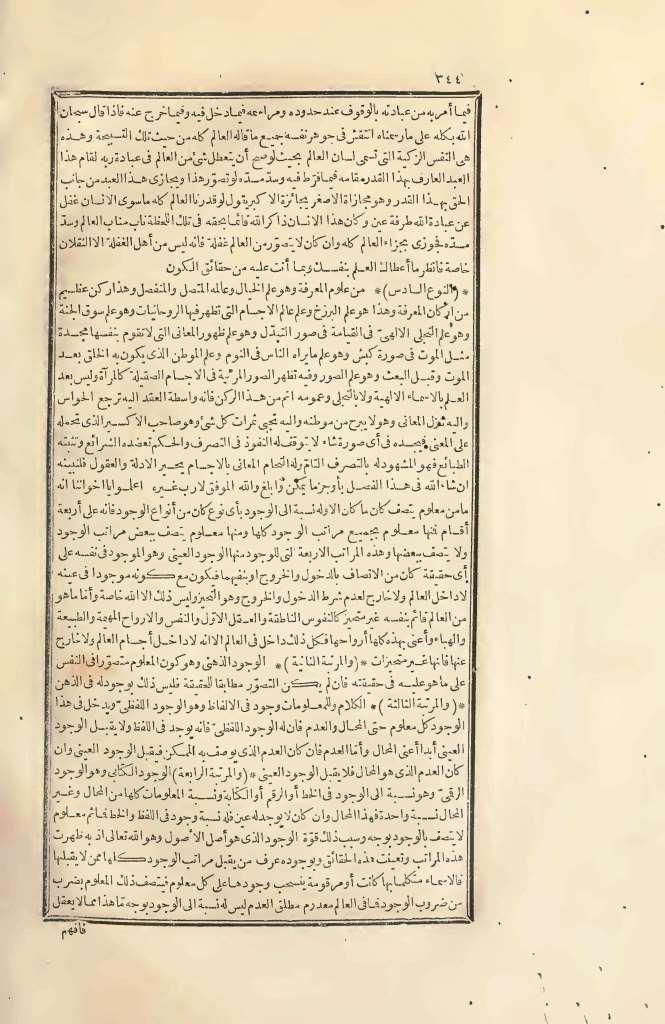 ٣٤٤
فيما أمر به من عبادته بالوقوف عند حدوده ومراسمه فيما دخل فيه وفيما خرج عنه فاذا قال سبحان
الله بكله على مارسمناه انتقش فى جوهر نفسه جميع ما قاله العالم كله من حيث تلك التسبيحة وهذه
هى النفس الزكية التى تسمى لسان العالم بحيث لوصح أن يتعطل شئ من العالم فى عبادة ربه لقام هذا
العبد العارف بهذا القدر مقامه فيما فرّط فيه وسدّ مسدّه لو تصوّر هذا ويجازى هذا العبد من جانب
الحق بهذا القدر وهو مجازاة الاصغر بجائزة الاكبر يقول لو قدرنا العالم كله ماسوى الانسان غفل
عن عبادة الله طرفة عين وكان هذا الانسان ذاكر الله فانما يحقه فى تلك اللحظة ناب مناب العالم وسدّ
مسدّه فجوزى بجزاء العالم كله وان كان لا يتصوّر من العالم غفلة فانه ليس من أهل الغفلة الا الثقلان
خاصة فانظر ما أعطاك العلم بنفسك وبما أنت عليه من حقائق الكون
* (النوع السادس) * من علوم المعرفة وهو علم الخيال وعالمه المتصل والمنفصل وهذا ركن عظيم
من أركان المعرفة وهذا هو علم البرزخ وعلم عالم الاجسام التى تظهر فيها الروحانيات وهو علم سوق الجنة
وهو علم التجلى الالهىّ فى القيامة فى صور التبدّل وهو علم ظهور المعانى التى لا تقوم بنفسها مجسدة
مثل الموت فى صورة كبش وهو علم ما يراه الناس فى النوم وعلم الموطن الذى يكون به الخلق بعد
الموت وقبل البعث وهو علم الصور وفيه تظهر الصور المرئية فى الاجسام الصقيلة كالمرآة وليس بعد
العلم بالاسماء الالهية ولا بالتجلى وعمومه اتم من هذا الركن فانه واسطة العقد اليه ترجع الحواس
واليه تنزل المعانى وهو لا يبرح من موطنه واليه تجبى ثمرات كل شئ وهو صاحب الاكسير الذى تحمله
على المعنى فيجسده فى أى صورة شاء لا يتوقف له النفوذ فى التصرف والحكم تعضده الشرائع وتثبته
الطبائع فهو المشهود له بالتصرف التامّ وله التحام المعانى بالاجسام يحير الادلة والعقول فلنبينه
ان شاء الله فى هذا الفصل بأوجز ما يمكن وأبلغ والله الموفق لا رب غيره اعلموا يا اخواننا انه
ما من معلوم يتصف كان ما كان الا وله نسبة الى الوجود بأى نوع كان من أنواع الوجود فانه على أربعة
أقسام فمنها معلوم بجميع مراتب الوجود كلها ومنها معلوم يتصف ببعض مراتب الوجود
ولا يتصف ببعضها وهذه المراتب الاربعة التى للوجود منها الوجود العينى وهو الموجود فى نفسه على
أى حقيقة كان من الاتصاف بالدخول والخروج او بنفيهما فيكون مع كونه موجودا فى عينه
لا داخل العالم ولا خارج لعدم شرط الدخول والخروج وهو التحيز وليس ذلك الا الله خاصة وأما ما هو
من العالم قائم بنفسه غير متحيز كالنفوس الناطقة والعقل الاوّل والنفس والارواح المهيمة والطبيعة
والهباء وأعنى بهذه كلها أرواحها فكل ذلك داخل فى العالم الا انه لا داخل أجسام العالم ولا خارج
عنها فانها غير متحيزات * (والمرتبة الثانية) * الوجود الذهنى وهو كون المعلوم متصوّرا فى النفس
على ما هو عليه فى حقيقته فان لم يكن التصوّر مطابقا للحقيقة فليس ذلك بوجود له فى الذهن
* (والمرتبة الثالثة) * الكلام وللمعلومات وجود فى الالفاظ وهو الوجود اللفظىّ ويدخل فى هذا
الوجود كل معلوم حتى المحال والعدم فان له الوجود اللفظىّ فانه يوجد فى اللفظ ولا يقبل الوجود
العينى أبدا أعنى المحال وأمّا العدم فان كان العدم الذى يوصف به الممكن فيقبل الوجود العينى وان
كان العدم الذى هو المحال فلا يقبل الوجود العينى * (والمرتبة الرابعة) الوجود الكتابى وهو الوجود
الرقمىّ وهو نسبة الى الوجود فى الخط أو الرقم أو الكتابة ونسبة المعلومات كلها من المحال وغير
المحال نسبة واحدة فهذا المحال وان كان لا يوجد له عين فله نسبة وجود فى اللفظ والخط فما ثم معلوم
لا يتصف بالوجود بوجه وسبب ذلك قوّة الوجود الذى هو أصل الأصول وهو الله تعالى اذ به ظهرت
هذه المراتب وتعينت هذه الحقائق وبوجوده عرف من يقبل مراتب الوجود كلها ممن لا يقبلها
فالاسماء متكلما بها كانت أو مرقومة ينسحب وجودها على كل معلوم فيتصف ذلك المعلوم بضرب
من ضروب الوجود فما فى العالم معدوم مطلق العدم ليس له نسبة الى الوجود بوجه تما هذا مما لا يعقل
فافهم